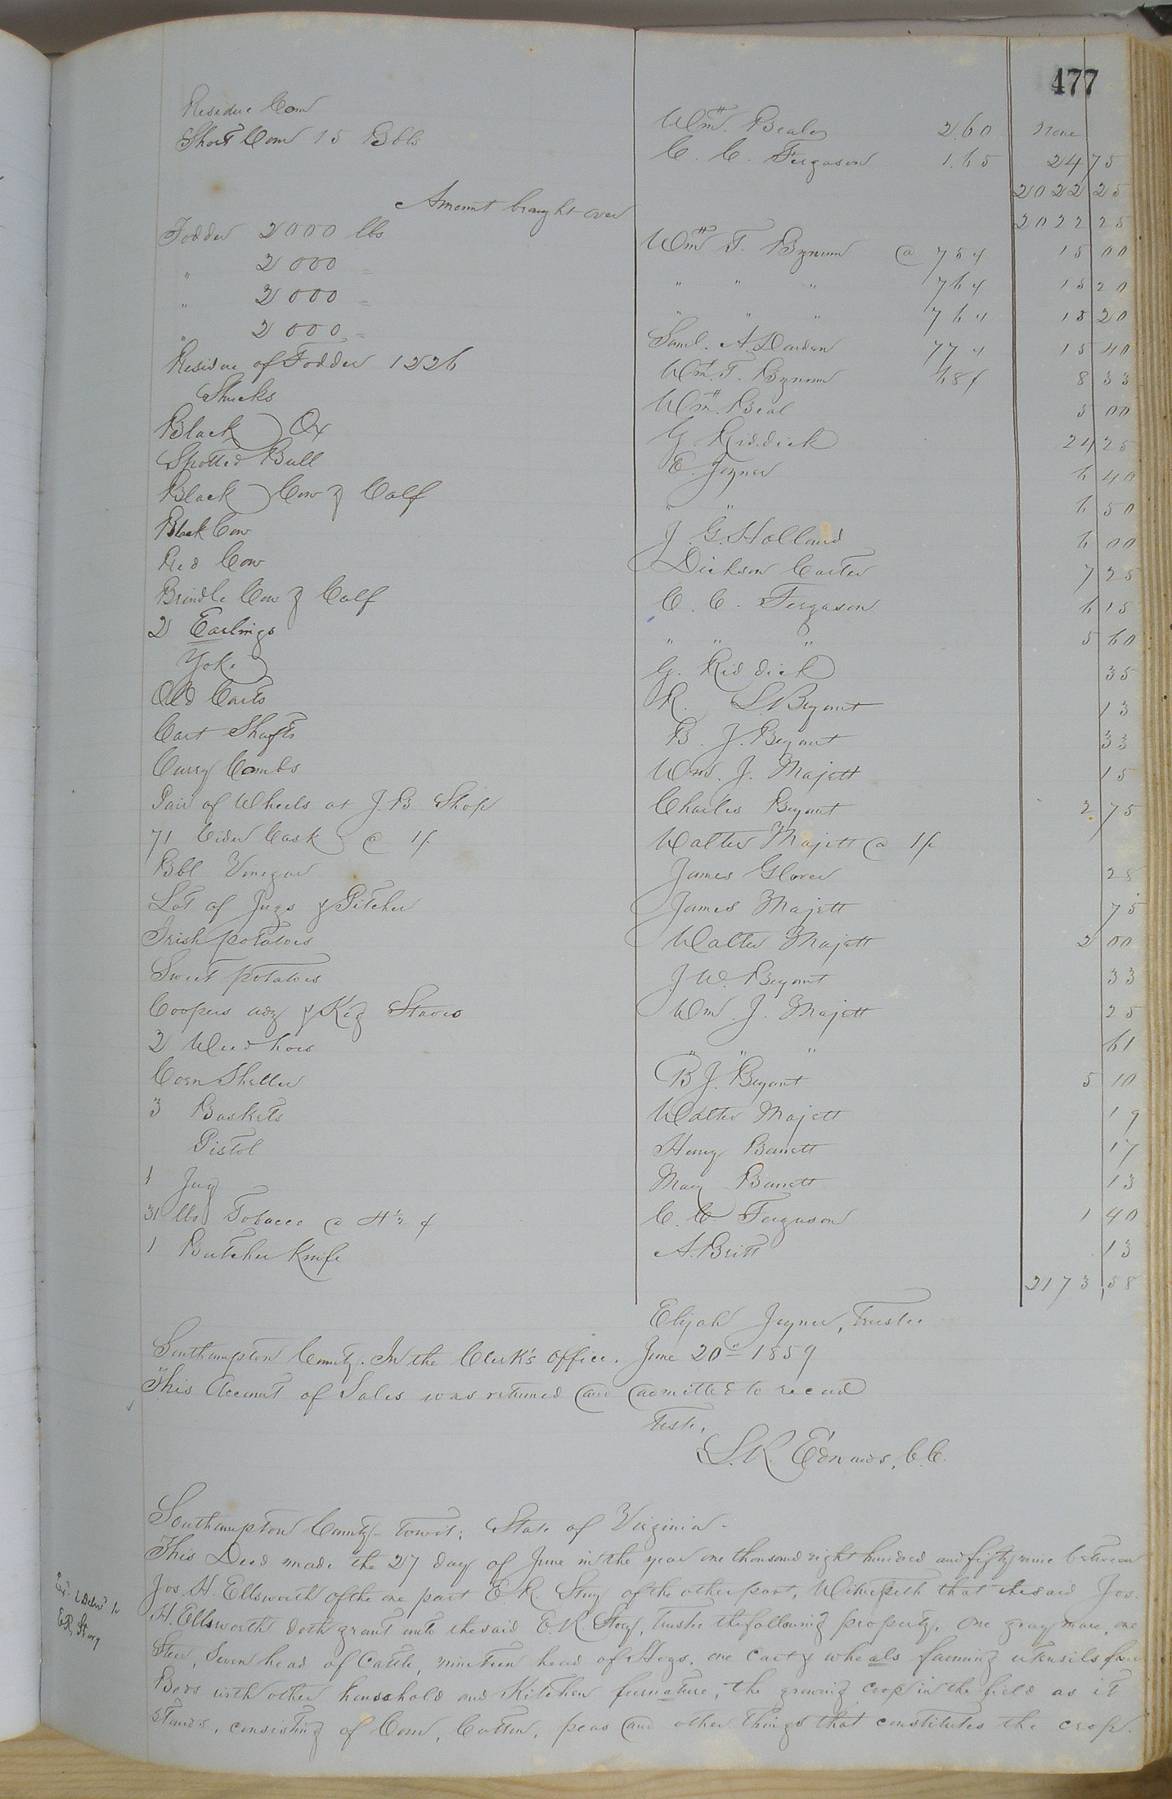 477
Residue Corn Wm. Beale 2.60 None
Short Corn 15 Bbls C. C. Ferguson 1.65 24 75
2022 25
Amount brought over 2022 25
Fodder 2000 lbs Wm T. Bynum @ 75¢ 15 00
" 2000 = " " " 76¢ 15 20
" 2000 = " " " 76¢ 15 20
" 2000 = Saml. A. Darden 77¢ 15 40
Residue of Fodder 1226 Wm. T. Bynum 68¢ 8 33
Shucks Wm. Beal 5 00
Black Ox G Riddick 24 25
Spotted Bull E. Joyner 6 40
Black Cow & Calf " " 6 50
Black Cow J. G. Holland 6 00
Red Cow Dickson Carter 7 25
Brindle Cow & Calf C. C. Ferguson 6 15
2 Earlings " " " 5 60
Yoke G. Riddick 35
Old Carts R. S Bryant 13
Cart Shafts B. J. Bryant 33
Curry Combs Wm. J. Majett 15
Pair of Wheels at J. B. Shop Charles Bryant 2 75
71 Cider Cask @ 1/. Walter Majett @ 1/.
Bbl Vinegar James Glover 28
Lot of Jugs & Pitcher James Majett 75
Irish potatoes Walter Majett 2 00
Sweet potatoes J W. Bryant 33
Coopers adz & Keg Staves Wm. J. Majett 25
2 Weed hoes " " " 61
Corn Sheller B J. Bryant 5 10
3 Baskets Walter Majett 19
Pistol Henry Barrett 17
1 Jug Mary Barrett 13
31 lbs Tobacco @ 4½ ¢ C. C. Ferguson 1 40
1 Butcher Knife A. Britt 13
2173 58
Elijah Joyner, Trustee
Southampton County. In the Clerk's Office. June 20th 1859
This Account of Sales was returned and admitted to record
Teste,
L. R. Edwards, C. C.
Southampton County towit: State of Virginia.
This Deed made the 27 day of June in the year one thousand eight hundred and fifty nine between
Jos. H. Ellsworth of the one part E R Story of the other part, Witnesseth that the said Jos.
H. Ellsworth doth grant unto the said E. R Story, Trustee the following property, One gray mare, one
Steer, Seven head of Cattle, nineteen head of Hogs, one cart & wheals farming utensils four
Beds with other household and Kitchen furnature, the growing crop in the field as it
stands, consisting of Corn, Cotton, peas and other things that constitutes the crop.
E. R. Story